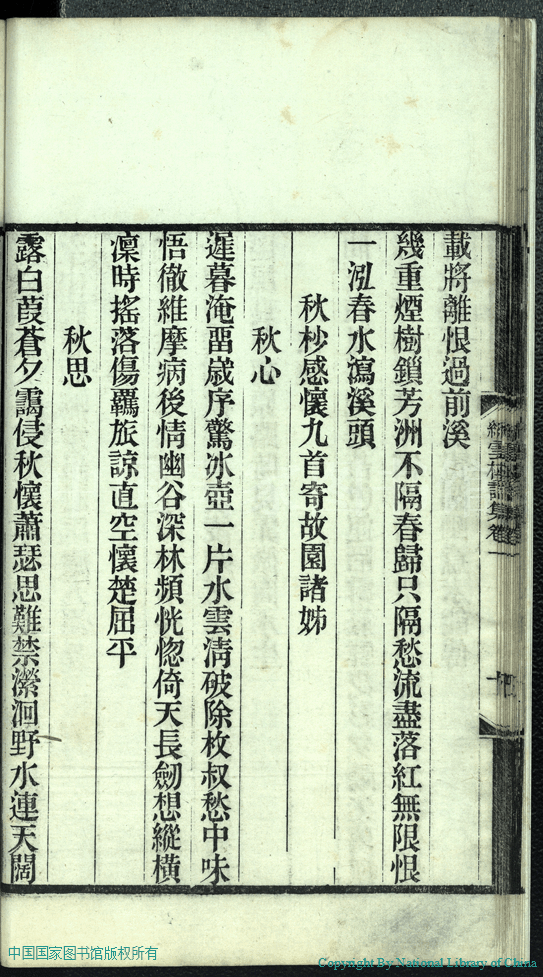 載將離恨過前溪
幾重煙樹鎖芳洲不隔春歸只隔愁流盡落紅無限恨
一泓春水瀉溪頭
秋杪感懷九首寄故園諸姊
秋心
遲暮淹畱歲序驚冰壺一片水雲淸破除枚叔愁中味
悟徹維摩病後情幽谷深林頻恍惚倚天長劒想縱橫
凜時搖落傷羈旅諒直空懷楚屈平
秋思
露白葭蒼夕靄侵秋懷蕭瑟思難禁瀠洄野水連天闊
中国国家图书馆版权所有
Copyright By National Library of China